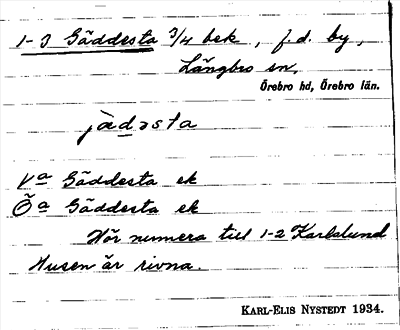 1-3 Gäddesta 3/4 bek, f.d. by,
Längbro sn,
Örebro hd, Örebro län.
jàdəsta
Va Gäddesta ek
Öa Gäddesta ek
Hör numera till 1-2 Karlslund
Husen är rivna.
KARL-ELIS NYSTEDT 1934.